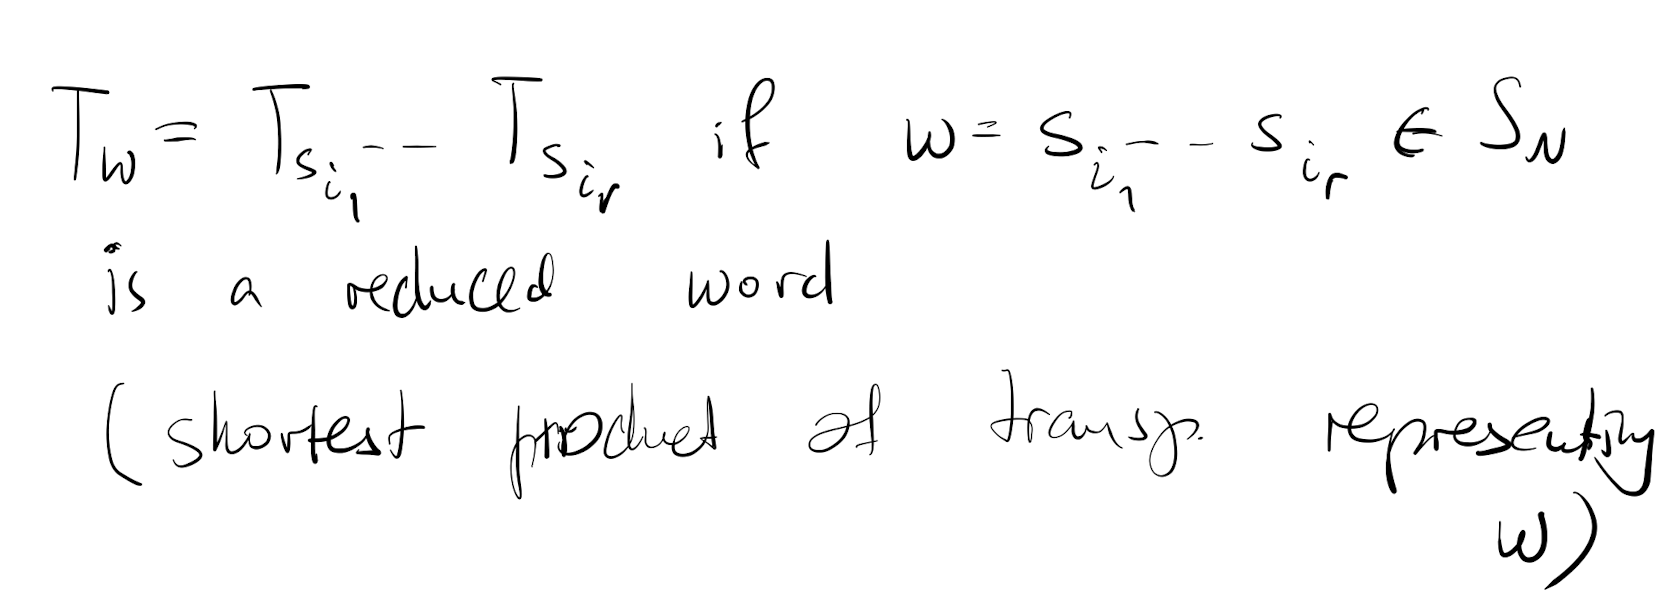 T_w = T_{s_{i_1}} -- T_{s_{i_r}} if w = s_{i_1} -- s_{i_r} ∈ S_N
is a reduced word
(shortest product of transp. representing
w)